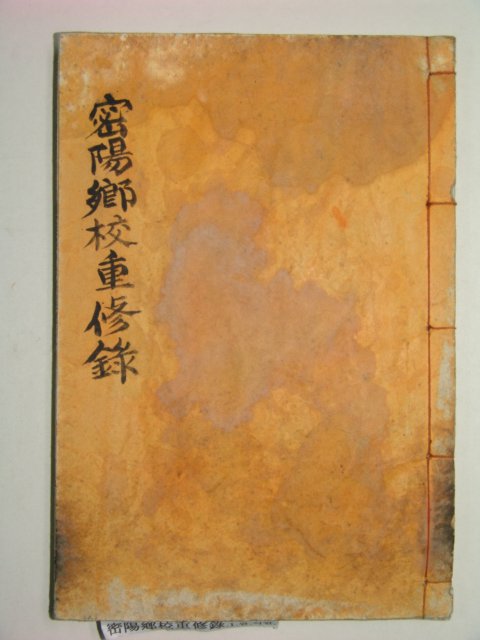 密陽鄉校重修錄
密陽鄉校重修錄